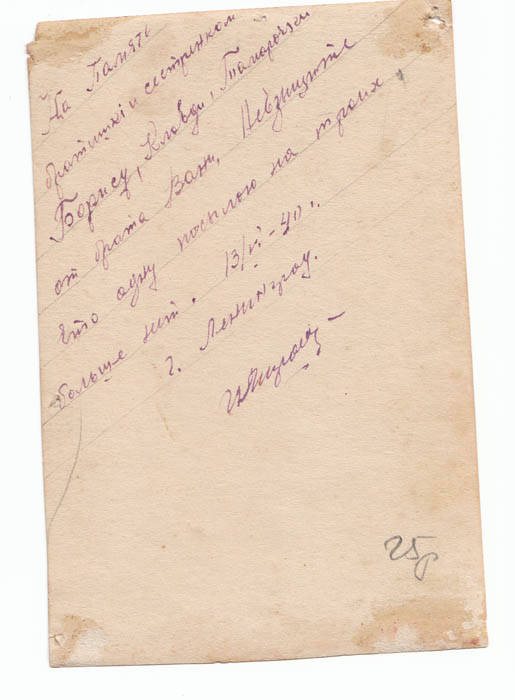 На Память
братишкі и сестренкам
Борису, Клавди, Тамарочки
от брата Вани, Невзищите
что одну посылаю на троих,
больше нит. 13/VI-40 г.
г. Ленинград.
25р